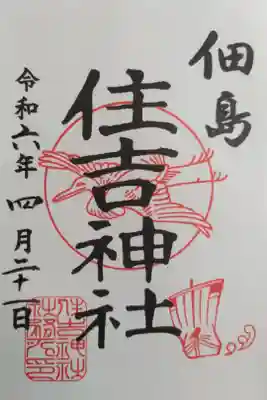 佃島
住吉神社
令和六年 四月二十一日
住吉神社
社務所印